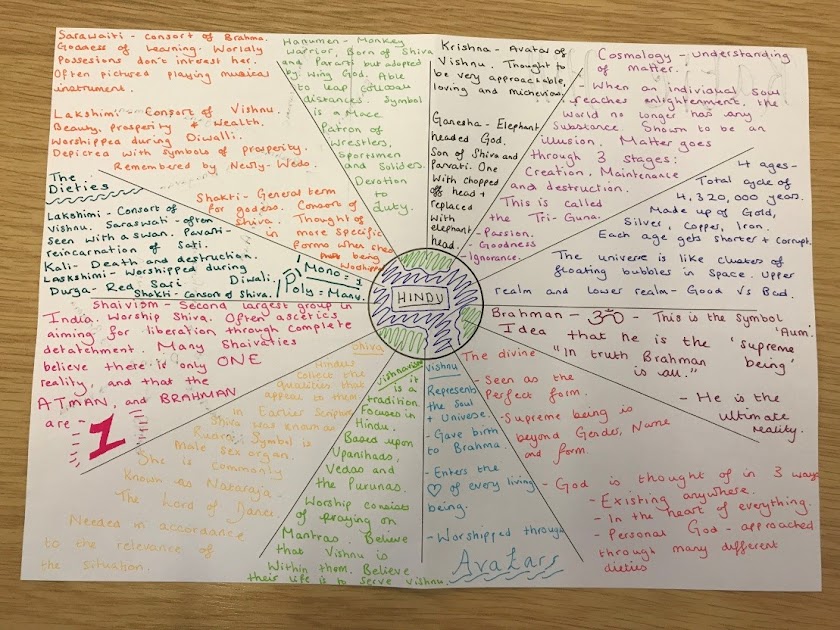 Saraswaiti - consort of Brahma.
Goddess of Learning. Worldly
Possesions don't interest her.
Often pictured playing musical
instrument.
Lakshimi - Consort of Vishnu.
Beauty, Prosperity + Wealth.
Worshipped during Diwalli.
Depicted with symbols of prosperity.
Remembered by Newly-Weds.
Hanumen - Monkey
Warrior, Born of Shiva
and Parvati but adopted
by Wind God. Able
to leap
distances. Symbol
is a Mace.
Patron of
Wrestlers,
Sportsmen
and Soliders.
Devotion
to
Duty.
Krishna - Avatar of
Vishnu. Thought to
be very approachable,
loving and micheviou
Ganesha - Elephant
headed God.
Son of Shiva and
Parvati. One
With chopped
off head +
replaced
with
elephant
head.
Cosmology - understanding
of matter.
- When an individual soul
reaches enlightenment, the
World no longer has any
Substance. Shown to be an
illusion. Matter goes
through 3 stages:
Creation, Maintenance
and destruction.
This is called
the Tri-Guna.
- Passion.
- Goodness
- Ignorance.
4 ages-
Total cycle of
4,320,000 years.
Made up of Gold,
Silver, Copper, Iron.
Each age gets shorter + corrupt.
The universe is like clusters of
floating bubbles in Space. Upper
realm and lower realm - Good vs Bad.
Brahman - ॐ - This is the symbol
'Aum.'
Idea that he is the 'supreme
being'
"In truth Brahman
is all."
- He is the
Ultimate
reality.
The divine
- Seen as the
Perfect form.
- Supreme being is
beyond Gender, Name
and form.
- God is thought of in 3 ways
- Existing anywhere.
- In the heart of everything.
- Personal God - approached
through many different
dieties
Vishnu
Represents
the Soul
+ Universe.
- Gave birth
to Brahma.
- Enters the
♡ of every living
being.
- Worshipped through
Avatars
Vishnavism
it is
is a
tradition
Focused in
Hindu.
Based upon
Upanihads,
Vedas and
the Purunas.
Worship consists
of praying on
Mantras. Believe
that Vishnu is
Within them. Believe
their life is to serve Vishnu.
Shiva
Hindus
collect the
qualities that
appeal to them.
in Earlier Scripture
Shiva was known as
Symbol is
male sex organ.
She is commonly
Known as Nataraja -
The Lord of Dance.
Needed in accordance
to the relevance of
the situation.
Shaivism - Second largest group in
India. Worship Shiva. Often ascetics
aiming for liberation through complete
detatchment. Many Shaivaties
believe there is only ONE
reality, and that the
ATMAN and BRAHMAN
are - 1
The
Dieties
Lakshimi - Consort of
Vishnu. Saraswati - often
Seen with a swan. Pavati -
reincarnation of Sati.
Kali - Death and destruction.
Laskshimi - Worshipped during
Diwali.
Durga - Red Sari
Shakti - consort of Shiva.
Shakti - General term
for godess. Consort of
Shiva. Thought of
in more specific
forms when
being
Mono = 1
Poly = Many.
HINDU